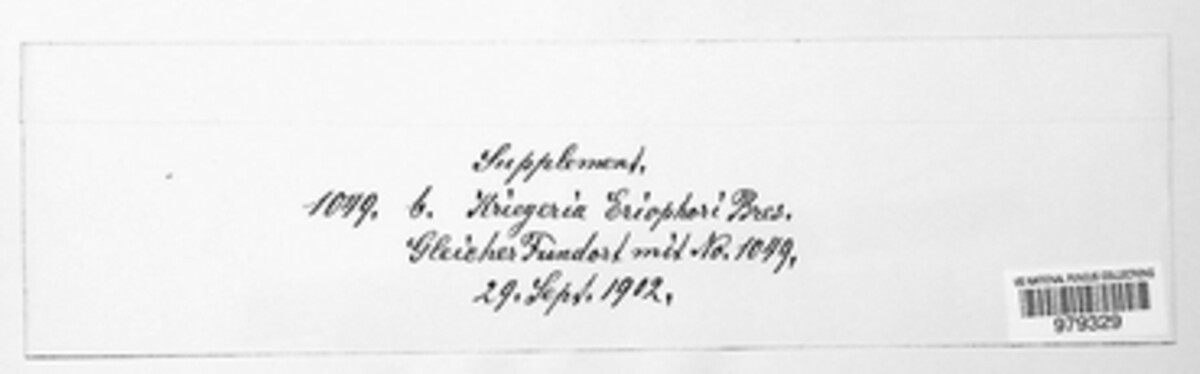 Supplement.
1049. b. Kriegeria Eriophori Bres.
Gleicher Fundort mit No. 1049,
29. Sept. 1902.
US NATIONAL FUNGUS COLLECTIONS
979329